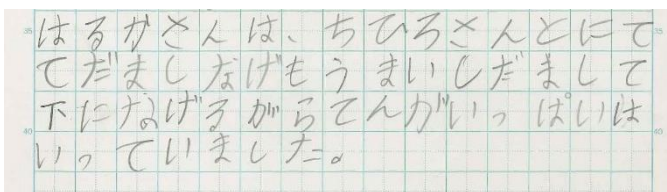 はるかさんは、ちひろさんとにて
てだましなげもうまいしだまして
下になげるがらてんがいっぱいは
いっていました。